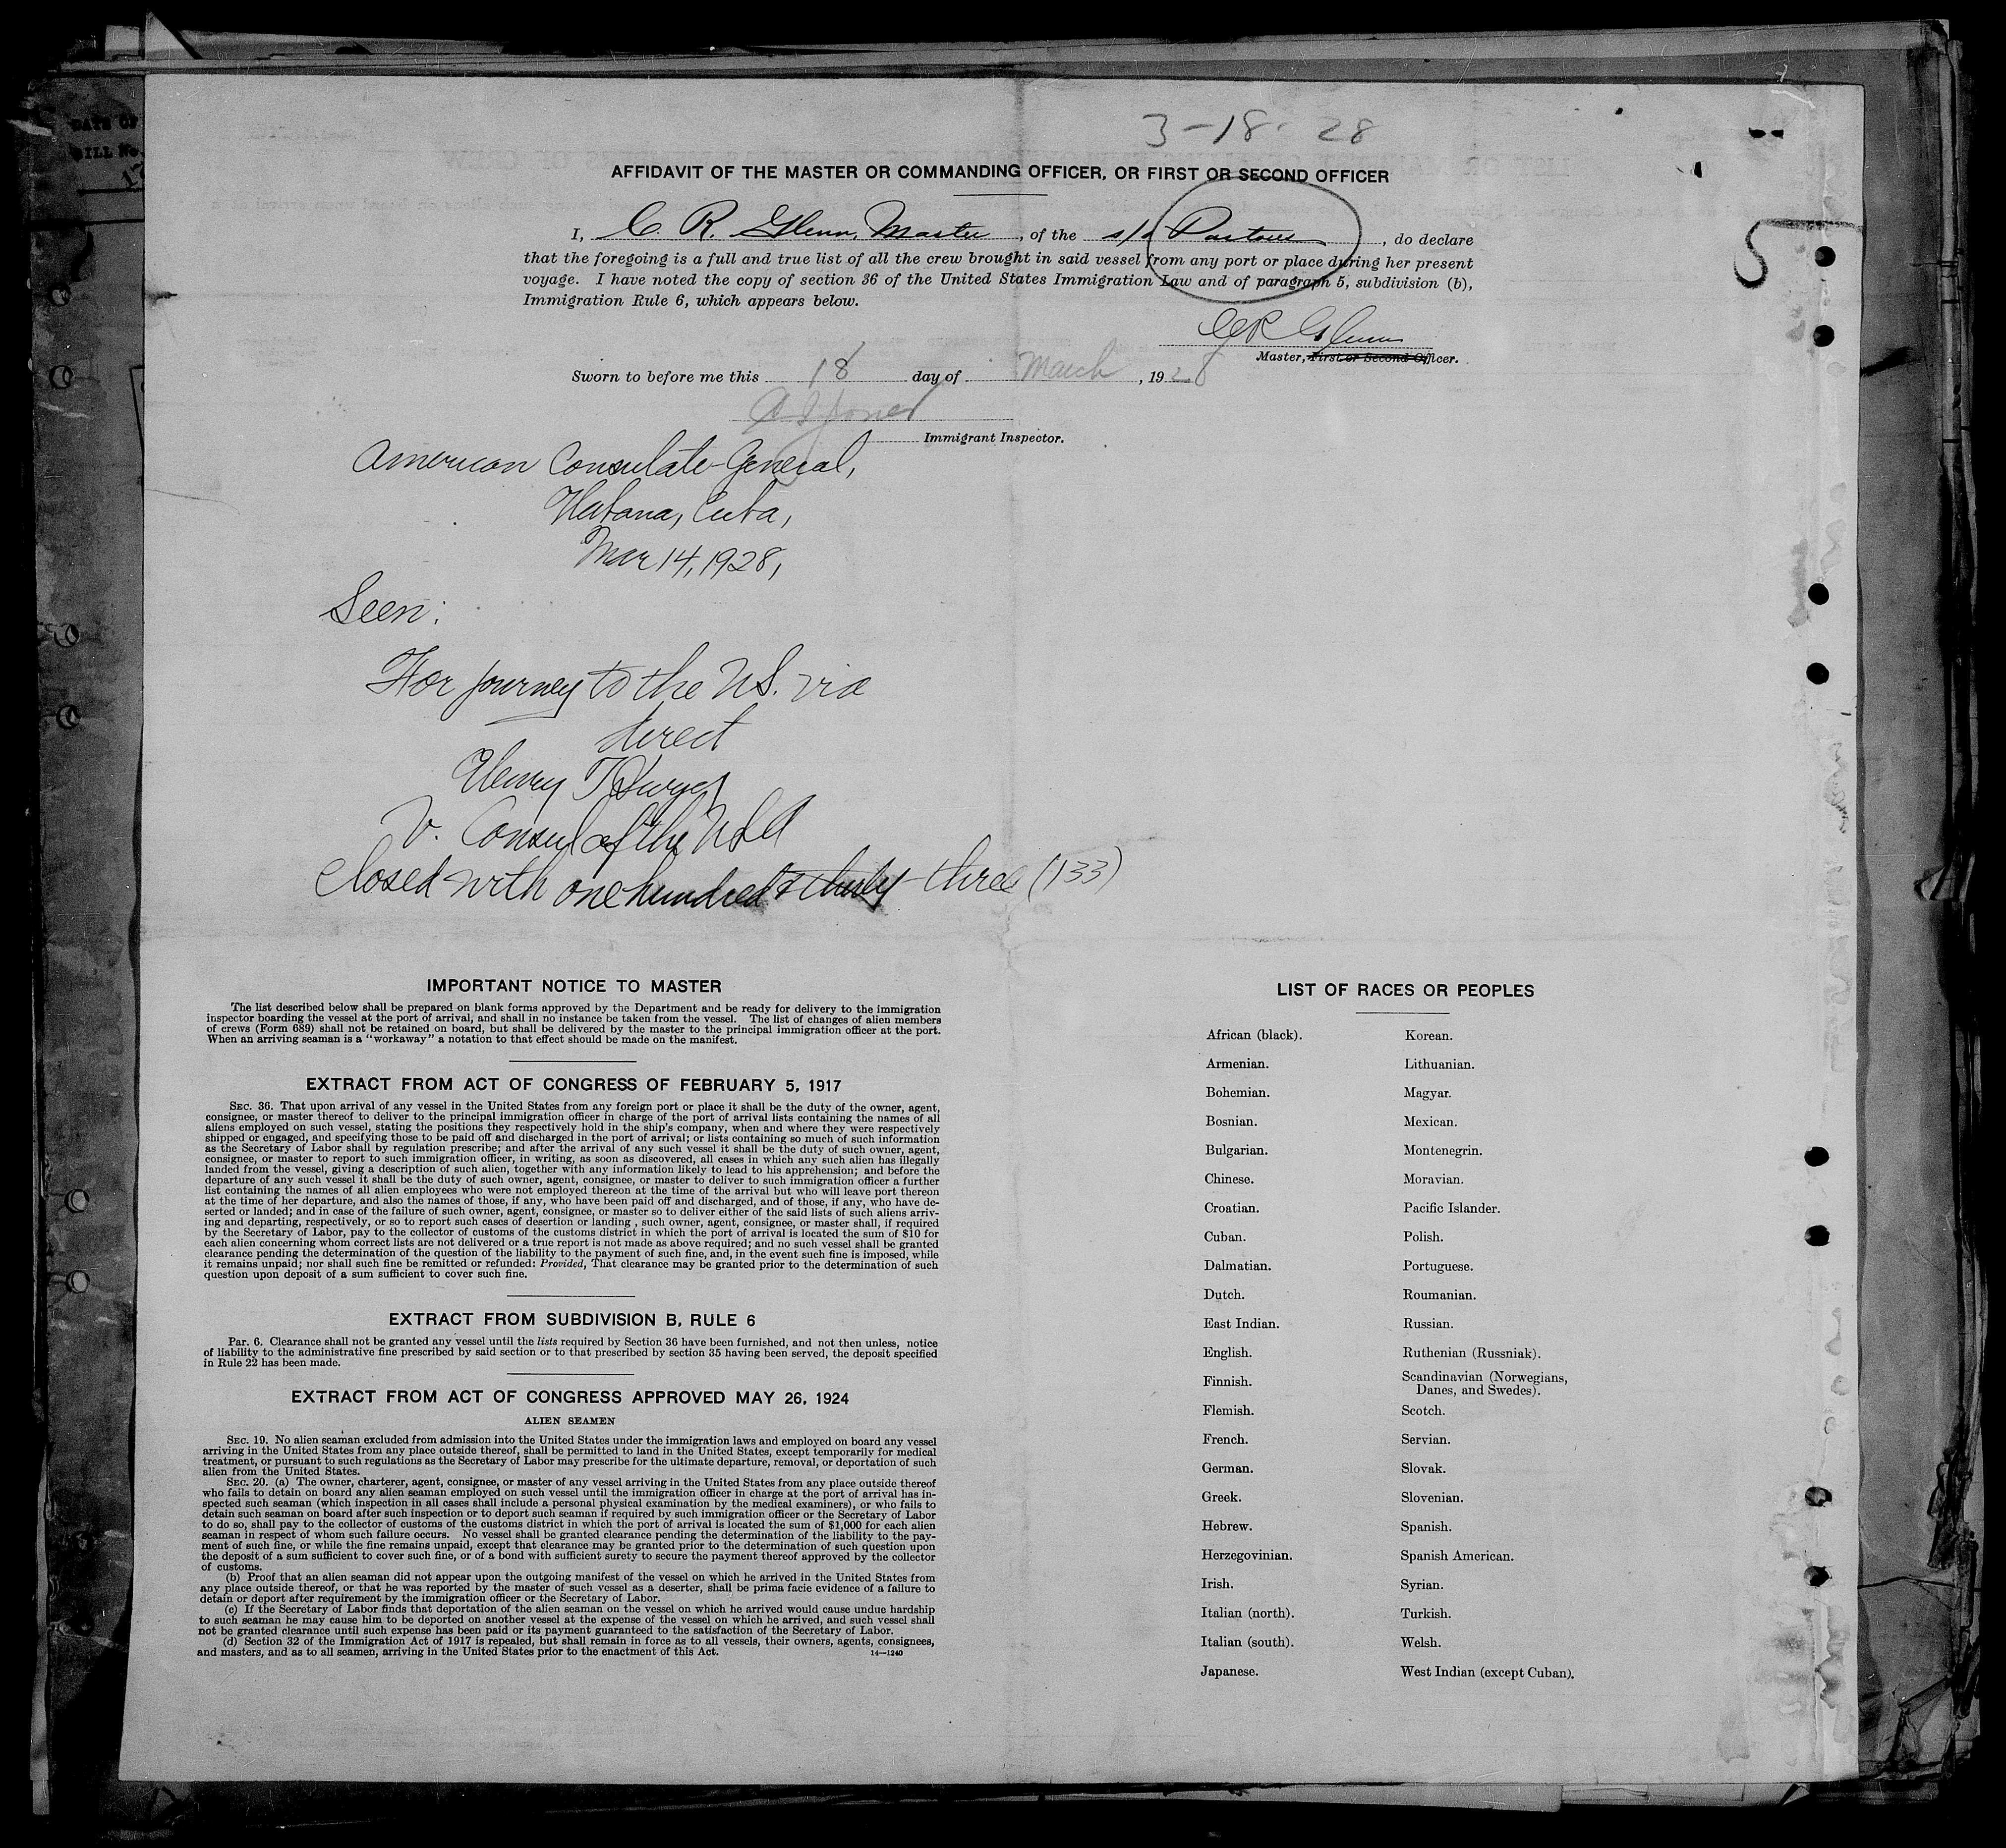 DATE OF
BILL No.
3-18-28
AFFIDAVIT OF THE MASTER OR COMMANDING OFFICER, OR FIRST OR SECOND OFFICER
5
I, C. R. Glenn, Master, of the s/s Pastores, do declare
that the foregoing is a full and true list of all the crew brought in said vessel from any port or place during her present
voyage. I have noted the copy of section 36 of the United States Immigration Law and of paragraph 5, subdivision (b),
Immigration Rule 6, which appears below.
C R Glenn
Master, First or Second Officer.
Sworn to before me this 18 day of March, 1928
Jones
Immigrant Inspector.
American Consulate-General,
Habana, Cuba,
Mar 14, 1928,
Seen:
For journey to the U.S. via
direct
Henry T
V. Consul of the USA
Closed with one hundred & thirty-three (133)
IMPORTANT NOTICE TO MASTER
The list described below shall be prepared on blank forms approved by the Department and be ready for delivery to the immigration
inspector boarding the vessel at the port of arrival, and shall in no instance be taken from the vessel. The list of changes of alien members
of crews (Form 689) shall not be retained on board, but shall be delivered by the master to the principal immigration officer at the port.
When an arriving seaman is a "workaway" a notation to that effect should be made on the manifest.
EXTRACT FROM ACT OF CONGRESS OF FEBRUARY 5, 1917
SEC. 36. That upon arrival of any vessel in the United States from any foreign port or place it shall be the duty of the owner, agent,
consignee, or master thereof to deliver to the principal immigration officer in charge of the port of arrival lists containing the names of all
aliens employed on such vessel, stating the positions they respectively hold in the ship's company, when and where they were respectively
shipped or engaged, and specifying those to be paid off and discharged in the port of arrival; or lists containing so much of such information
as the Secretary of Labor shall by regulation prescribe; and after the arrival of any such vessel it shall be the duty of such owner, agent,
consignee, or master to report to such immigration officer, in writing, as soon as discovered, all cases in which any such alien has illegally
landed from the vessel, giving a description of such alien, together with any information likely to lead to his apprehension; and before the
departure of any such vessel it shall be the duty of such owner, agent, consignee, or master to deliver to such immigration officer a further
list containing the names of all alien employees who were not employed thereon at the time of the arrival but who will leave port thereon
at the time of her departure, and also the names of those, if any, who have been paid off and discharged, and of those, if any, who have de-
serted or landed; and in case of the failure of such owner, agent, consignee, or master so to deliver either of the said lists of such aliens arriv-
ing and departing, respectively, or so to report such cases of desertion or landing , such owner, agent, consignee, or master shall, if required
by the Secretary of Labor, pay to the collector of customs of the customs district in which the port of arrival is located the sum of $10 for
each alien concerning whom correct lists are not delivered or a true report is not made as above required; and no such vessel shall be granted
clearance pending the determination of the question of the liability to the payment of such fine, and, in the event such fine is imposed, while
it remains unpaid; nor shall such fine be remitted or refunded: Provided, That clearance may be granted prior to the determination of such
question upon deposit of a sum sufficient to cover such fine.
EXTRACT FROM SUBDIVISION B, RULE 6
Par. 6. Clearance shall not be granted any vessel until the lists required by Section 36 have been furnished, and not then unless, notice
of liability to the administrative fine prescribed by said section or to that prescribed by section 35 having been served, the deposit specified
in Rule 22 has been made.
EXTRACT FROM ACT OF CONGRESS APPROVED MAY 26, 1924
ALIEN SEAMEN
SEC. 19. No alien seaman excluded from admission into the United States under the immigration laws and employed on board any vessel
arriving in the United States from any place outside thereof, shall be permitted to land in the United States, except temporarily for medical
treatment, or pursuant to such regulations as the Secretary of Labor may prescribe for the ultimate departure, removal, or deportation of such
alien from the United States.
SEC. 20. (a) The owner, charterer, agent, consignee, or master of any vessel arriving in the United States from any place outside thereof
who fails to detain on board any alien seaman employed on such vessel until the immigration officer in charge at the port of arrival has in-
spected such seaman (which inspection in all cases shall include a personal physical examination by the medical examiners), or who fails to
detain such seaman on board after such inspection or to deport such seaman if required by such immigration officer or the Secretary of Labor
to do so, shall pay to the collector of customs of the customs district in which the port of arrival is located the sum of $1,000 for each alien
seaman in respect of whom such failure occurs. No vessel shall be granted clearance pending the determination of the liability to the pay-
ment of such fine, or while the fine remains unpaid, except that clearance may be granted prior to the determination of such question upon
the deposit of a sum sufficient to cover such fine, or of a bond with sufficient surety to secure the payment thereof approved by the collector
of customs.
(b) Proof that an alien seaman did not appear upon the outgoing manifest of the vessel on which he arrived in the United States from
any place outside thereof, or that he was reported by the master of such vessel as a deserter, shall be prima facie evidence of a failure to
detain or deport after requirement by the immigration officer or the Secretary of Labor.
(c) If the Secretary of Labor finds that deportation of the alien seaman on the vessel on which he arrived would cause undue hardship
to such seaman he may cause him to be deported on another vessel at the expense of the vessel on which he arrived, and such vessel shall
not be granted clearance until such expense has been paid or its payment guaranteed to the satisfaction of the Secretary of Labor.
(d) Section 32 of the Immigration Act of 1917 is repealed, but shall remain in force as to all vessels, their owners, agents, consignees,
and masters, and as to all seamen, arriving in the United States prior to the enactment of this Act.
14—1240
LIST OF RACES OR PEOPLES
African (black).
Armenian.
Bohemian.
Bosnian.
Bulgarian.
Chinese.
Croatian.
Cuban.
Dalmatian.
Dutch.
East Indian.
English.
Finnish.
Flemish.
French.
German.
Greek.
Hebrew.
Herzegovinian.
Irish.
Italian (north).
Italian (south).
Japanese.
Korean.
Lithuanian.
Magyar.
Mexican.
Montenegrin.
Moravian.
Pacific Islander.
Polish.
Portuguese.
Roumanian.
Russian.
Ruthenian (Russniak).
Scandinavian (Norwegians,
Danes, and Swedes).
Scotch.
Servian.
Slovak.
Slovenian.
Spanish.
Spanish American.
Syrian.
Turkish.
Welsh.
West Indian (except Cuban).